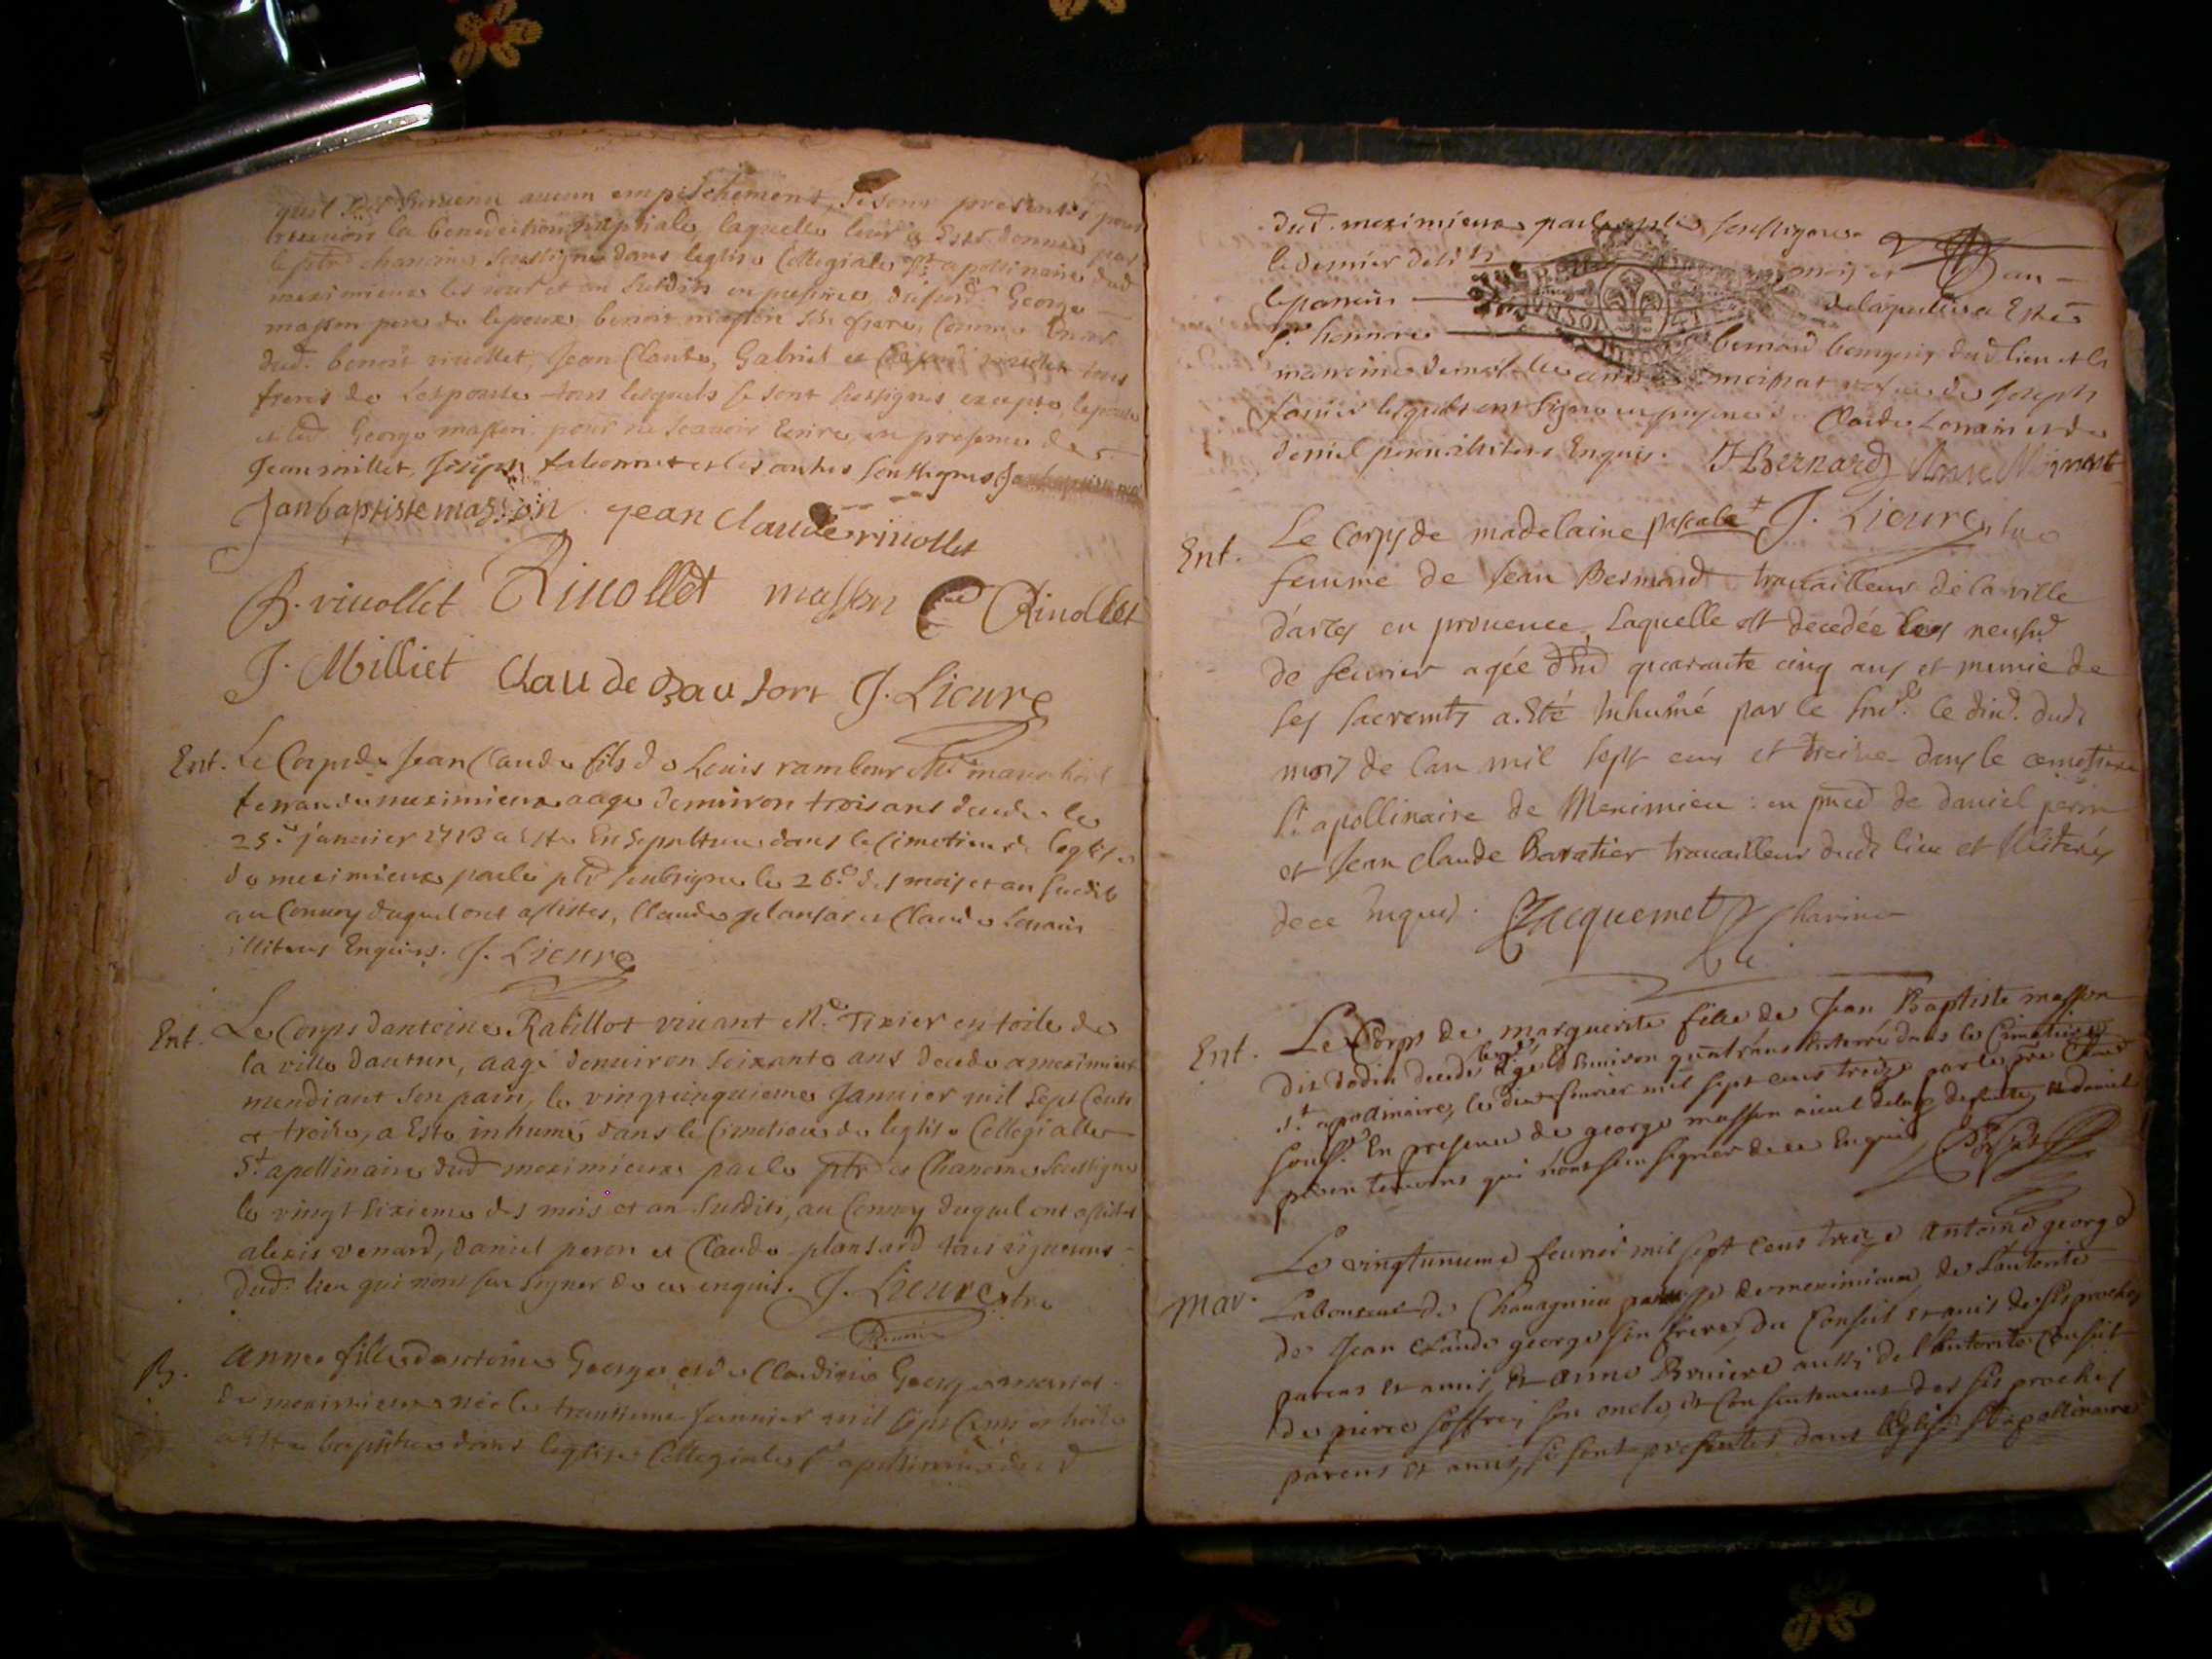 aucun empeschement, se sont presentés pour
la benediction nuptiale, laquelle leur a esté donnee par
chanoine soussigné dans leglise Collegiale St apollinaire dud
meximieux les jour et an susdits en presence George
masson pere de lepoux, benoit son frere, comme
dud. benoit rivollet, Jean Claude, Gabriel et rivollet tous
freres de Lespouse tous lesquels se sont sussignés excepté lepouse
et led. George masson pour ne scavoir Ecrire en presence de
Jean millet, Joseph et les autres soussignes
Janbaptiste masson jean claude rivollet
B. rivollet Rivollet masson Rivollet
J. Milliet Claude J. Lieure
Ent. Le Corps de Jean Claude fils de Louis rambour Me mareschal
de meximieux aagé denviron trois ans decedé le
25e janvier 1713 a esté Ensepulturé dans le Cimetiere de leglise
de meximieux par le ptre soubsigné le 26e des mois et an susdits
au Convoy duquel ont assistes, Claude plansar et Claude Lorrain
illiteres Enquis. J. Lieure
Ent. Le Corps dantoine Rabillot vivant Me Tixier en toile de
la ville dautun, aagé denviron soixante ans decedé a meximieux
mendiant son pain, le vingtcinquieme Janvier mil sept Cents
et treize, a esté inhumé dans le Cimetiere de leglise Collegialle
St apollinaire dud meximieux par le ptre et Chanoine soussigné
le vingt sixieme des mois et an susdits, au Convoy duquel ont assistes
alexis venard, daniel peron et Claude plansard tous vignerons
dud. lieu qui nont sceu signer de ce enquis. J. Lieure ptre
B. anne fille dantoine George et de Claudine George mariés
de meximieux née le trentieme Janvier mil sept Cents et treize
a esté baptisée dans leglise Collegiale St apollinaire dud
dud. meximieux par le ptre soussigné
le dernier desdits mois et an
le parrain de la a Esté
Sr honnore bernard bourgeois dud lieu et la
marraine demoiselle anne moignat de Joseph
lesquels ont signé en presence de Claude Lorrain et de
Deniel peron illiteres Enquis. J Bernard Anne Moignat
J. Lieure ptre
Ent. Le Corps de madelaine pascale
femme de Jean Bermond travailleur de la ville
d'arles en provence, Laquelle est decedée le neufvd
de fevrier agée d'Env quarante cinq ans et munie de
ses sacremts a Eté Inhumé par le soud. le dixe. dud
mois de lan mil sept cens et treize dans le cemetiere
St. apollinaire de Meximieu : en pnce de daniel peron
et Jean Claude Baratier travailleur dudt lieu et illiterés
dece Enquis. Jacquemet Chanoine
Ent. Le Corps de marguerite fille de Jean Baptiste masson
dit dodin decedé agée d'Environ quatr'ans Enterré dans le Cimetiere
St. apollinaire, le dix fevrier mil sept cens treize par le ptre
souss. En presence de george masson aieul de la defunte, et daniel
peron temoins qui n'ont sceu signer de ce Enquis
mar. Le vingtunieme fevrier mil sept cens treize antoine george
Laboureur de Chavagnieu paroisse de meximieux, de Lautorité
de Jean Claude george son frere, du Conseil et avis de ses proches
parens et amis, Et anne Bruiere aussi de l'Autorité Conseil
de pierre joffrei son oncle, et Consentement des ses proches
parens et amis, se sont presentés dans l'Eglise St apollinaire